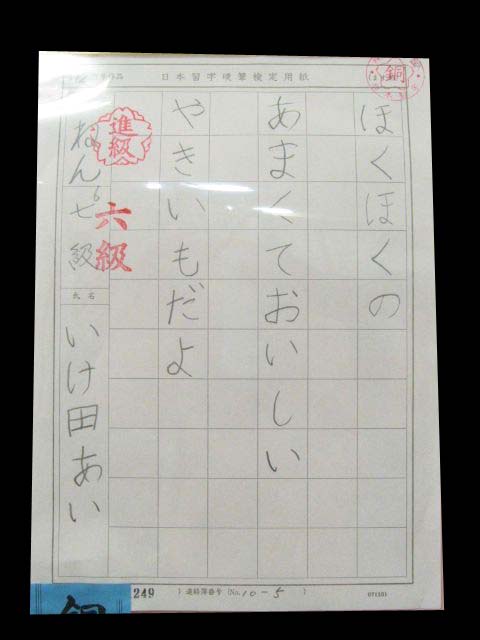 日本習字硬筆検定用紙
銅
ほくほくの
あまくておいしい
やきいもだよ
進級
六級
ねん七級
6
氏名
いけ田あい
249
連絡簿番号(No. 10-5 )
071101